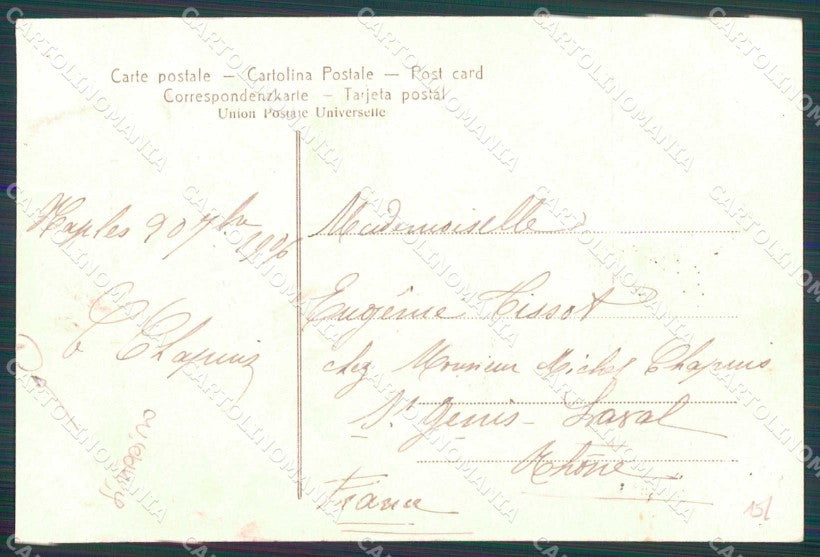 Carte postale — Cartolina Postale — Post card
Correspondenzkarte — Tarjeta postal
Union Postale Universelle
Naples 20 7bre
1906
C Chapuis
Mademoiselle
Eugénie Tissot
chez Monsieur Michel Chapuis
St Genis-Laval
Rhône
France
15/
CARTOLINOMANIA